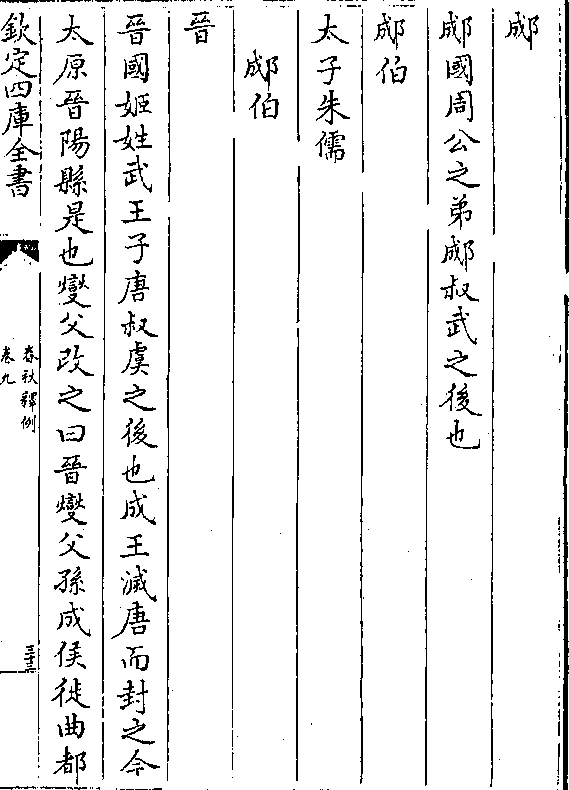 郕
郕國周公之弟郕叔武之後也
郕伯
太子朱儒
郕伯
晉
晉國姬姓武王子唐叔虞之後也成王滅唐而封之今
太原晉陽縣是也爕父改之曰晉爕父孫成侯徙曲都
欽定四庫全書
春秋釋例
卷九
三十三